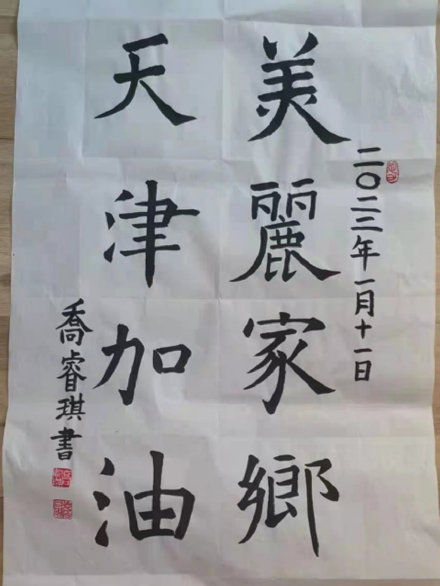 二〇二二年一月十一日
美麗家鄉
天津加油
喬睿琪書